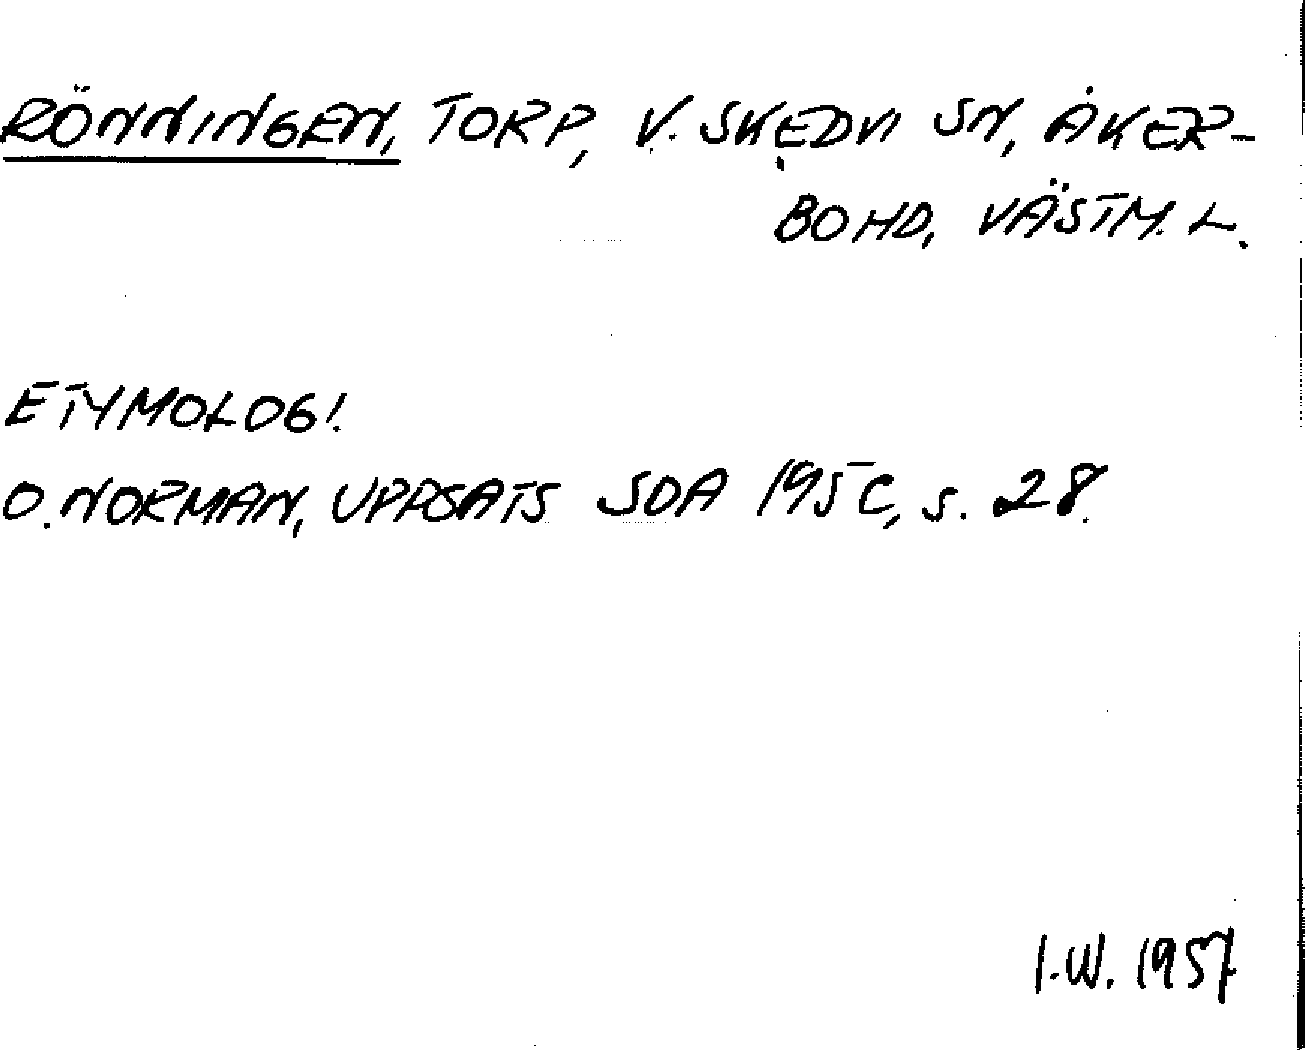 RÖNNINGEN, TORP, V. SKEDVI SN, ÅKER-
BO HD, VÄSTM. L.
ETYMOLOGI.
O. NORMAN, UPPSATS SOA 195C, s. 28.
I.W. 1957